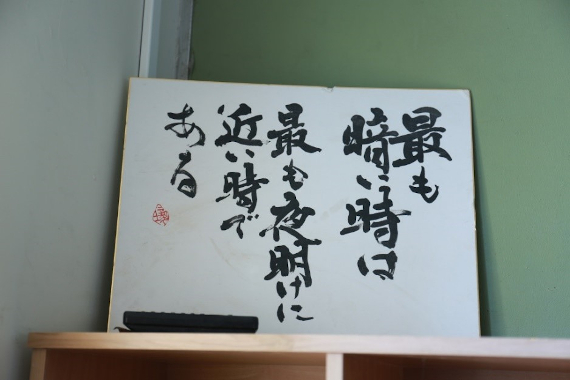 最も
暗い時は
最も夜明けに
近い時で
ある